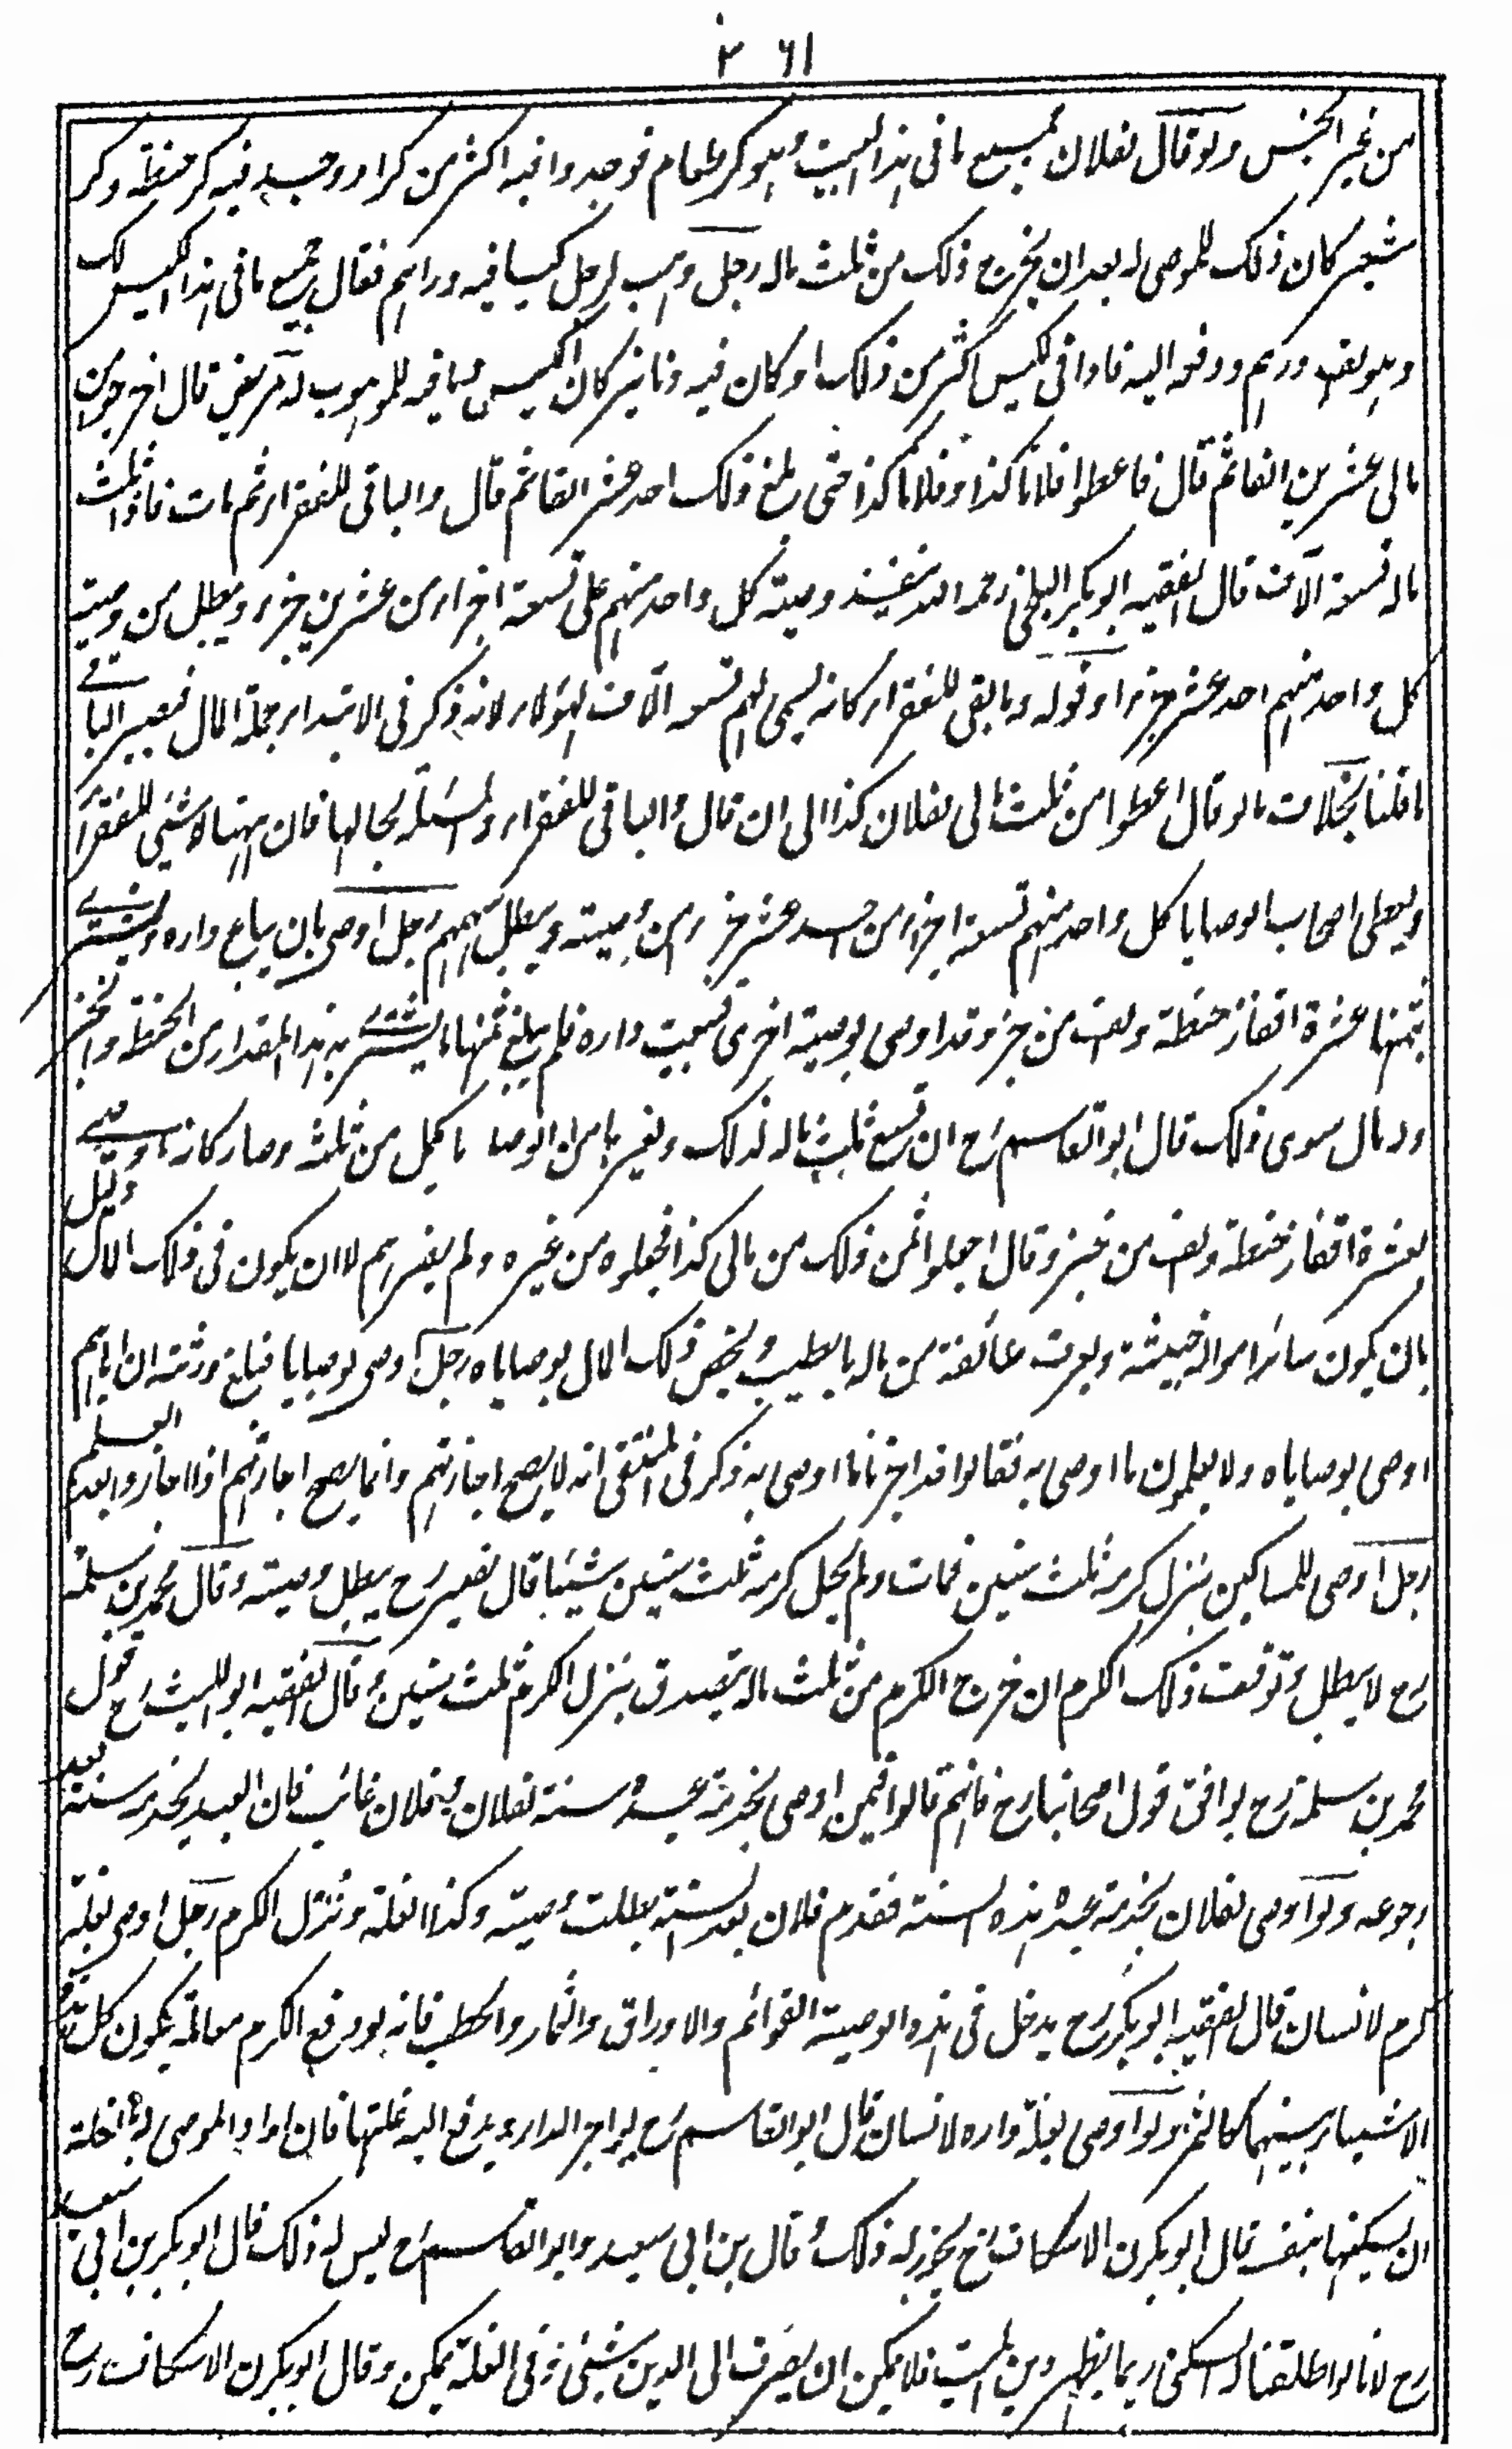 ٦١ ٢
من غير الجنس ولو قال لفلان جميع ما في هذا البيت وهو كر طعام فوجدوا فيه اكثر من كر او وجد فيه كر حنطة وكر
شعير كان ذلك للموصى له بعد ان يخرج ذلك من ثلث ماله رجل وهب لرجل كيسا فيه دراهم فقال جميع ما في هذا الكيس لك
وهو الف درهم ودفعه اليه فاذا في الكيس اكثر من ذلك او كان فيه دنانير كان الكيس وما فيه للموهوب له مريض قال اخرجوا من
مالي عشرين الفا ثم قال فاعطوا فلانا كذا وفلانا كذا حتى بلغ ذلك احد عشر الفا ثم قال والباقي للفقراء ثم مات فاذا ثلث
ماله تسعة آلاف قال الفقيه ابو بكر البلخي رحمه الله ينفذ وصية كل واحد منهم على تسعة اجزاء من عشرين جزء ويبطل من وصية
كل واحد منهم احد عشر جزءا وقوله وما بقي للفقراء كانه يسمى لهم تسعة آلاف لهؤلاء لانه ذكر في الابتداء جملة المال فيصير الباقي
ما قلنا بخلاف ما لو قال اعطوا من ثلث مالي لفلان كذا الى ان قال والباقي للفقراء والمسئلة بحالها فان ههنا لا شيء للفقراء
ويعطى اصحاب الوصايا كل واحد منهم تسعة اجزاء من احد عشر جزء من وصيته ويبطل سهمهم رجل اوصى بان يباع داره ويشترى
بثمنها عشرة اقفاز حنطة والف من خبز وقد اوصى بوصية اخرى فبيعت داره فلم يبلغ ثمنها ما يشترى به هذا المقدار من الحنطة والخبز
وله مال سوى ذلك قال ابو القاسم رح ان وسع ثلث ماله لذلك ولغيرها من الوصايا يكمل من ثلثه وصار كانه اوصى
بعشرة اقفاز حنطة والف من خبز وقال اجعلوا ثمن ذلك من مالي كذا فجعلوه من غيره ولم يضرهم الا ان يكون في ذلك المال دليل
بان يكون سائر امواله خبيثة ويعرف طائفة من ماله بالطيب ويخص ذلك المال بوصاياه رجل اوصى بوصايا فبلغ ورثته ان اباهم
اوصى بوصاياه ولا يعلمون ما اوصى به فقالوا قد اجزنا ما اوصى به ذكر في المنتقى انه لا يصح اجازتهم وانما يصح اجازتهم اذا اجازوا بعد العلم
رجل اوصى للمساكين بنزل كرمه ثلث سنين فمات ولم يحمل كرمه ثلث سنين شيئا قال نصير رح يبطل وصيته وقال محمد بن سلمة
رح لا يبطل وتوقف ذلك الكرم ان خرج الكرم من ثلث ماله يتصدق بنزل الكرم ثلث سنين وقال الفقيه ابو الليث رح قول
محمد بن سلمة رح يوافق قول اصحابنا رح فانهم قالوا فيمن اوصى بخدمة عبده سنة لفلان وفلان غائب فان العبد يخدمه سنة بعد
رجوعه ولو اوصى لفلان بخدمة عبده هذه السنة فقدم فلان بعد السنة بطلت وصيته وكذا الغلة ونزل الكرم رجل اوصى بغلة
كرم لانسان قال الفقيه ابو بكر رح يدخل في هذه الوصية القوائم والاوراق والثمار والحطب فانه لو دفع الكرم معاملة يكون كل هذه
الاشياء بينهما كالثمر ولو اوصى بغلة داره لانسان قال ابو القاسم رح يواجر الدار ويدفع اليه غلتها فان اراد الموصى له بالغلة
ان يسكنها بنفسه قال ابو بكر الاسكاف رح يجوز له ذلك وقال ابن ابي سعيد وابو القاسم رح ليس له ذلك قال ابو بكر بن ابي سعيد
رح لانا لو اطلقنا له السكنى ربما يظهر دين الميت فلا يمكن ان يصرف الى الدين شيئ وفي الغلة يمكن وقال ابو بكر الاسكاف رح